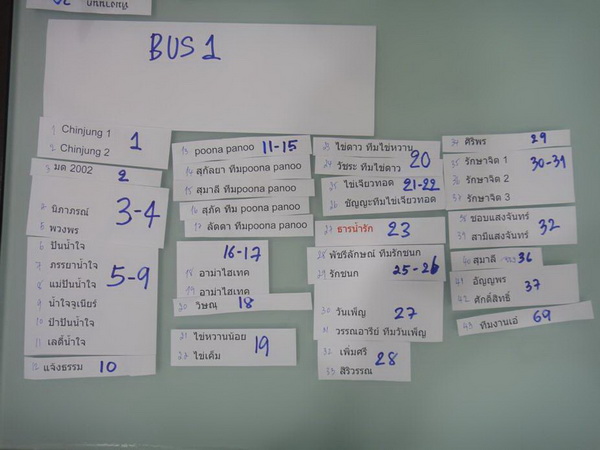 BUS 1
1 Chinjung 1
2 Chinjung 2
1
3 มด 2002
2
นิภาภรณ์
5 พวงพร
3-4
6 ปันน้ำใจ
7 ภรรยาน้ำใจ
8 แม่ปันน้ำใจ
9 น้ำใจจูเนียร์
10 ป๋าปันน้ำใจ
11 เลดี้น้ำใจ
5-9
12 แจ้งธรรม
10
13 poona panoo 11-15
14 สุกัลยา ทีมpoona panoo
15 สุมาลี ทีมpoona panoo
16 สุภัค ทีม poona panoo
17 ลัดดา ทีมpoona panoo
16-17
18 อาม่าไฮเทค
19 อาม่าไฮเทค
20 วิษณุ 18
21 ไข่หวานน้อย
22 ไข่เค็ม
19
23 ไข่ดาว ทีมไข่หวาน
24 วัชระ ทีมไข่ดาว
20
25 ไข่เจียวทอด 21-22
26 ชัญญะทีมไข่เจียวทอด
27 ธารน้ำรัก 23
28 พัชรีลักษณ์ ทีมรักชนก
29 รักชนก 25-26
30 วันเพ็ญ
27
31 วรรณอารีย์ ทีมวันเพ็ญ
32 เพิ่มศรี
33 สิริวรรณ
28
34 ศิริพร 29
35 รักษาจิต 1
36 รักษาจิต 2
37 รักษาจิต 3
30-31
38 ชอบแสงจันทร์
39 สามีแสงจันทร์
32
40 สุมาลี 36
41 อัญญพร
42 ศักดิ์สิทธิ์
37
43 ทีมงานเอ๋ 69